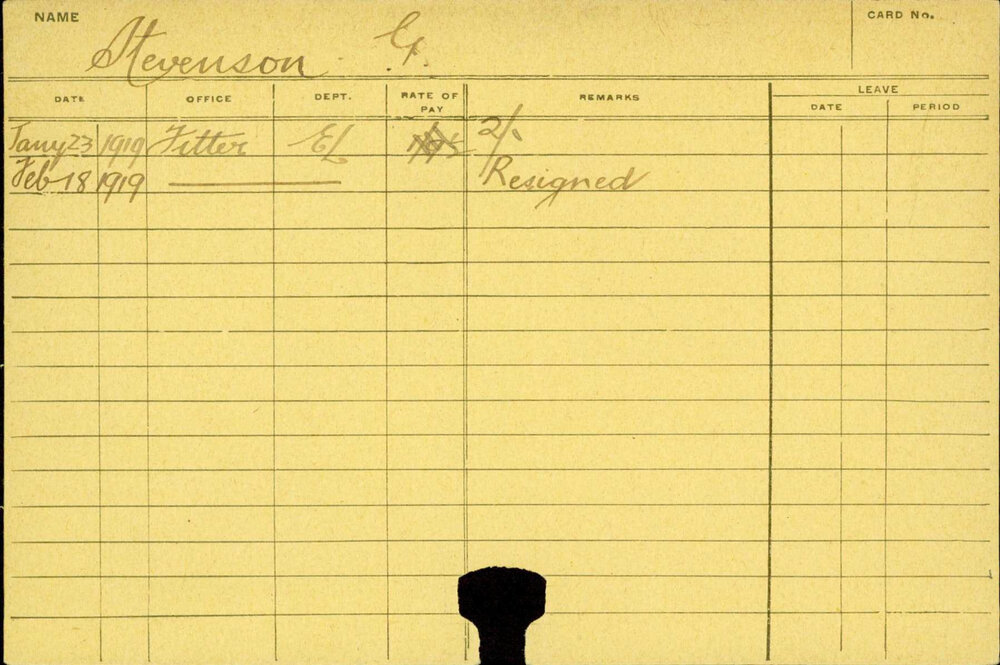 NAME
CARD No.
Stevenson G.
DATE OFFICE DEPT. RATE OF PAY REMARKS LEAVE
DATE PERIOD
Jany 23 1919 Fitter EL 2/.
Feb 18 1919 Resigned